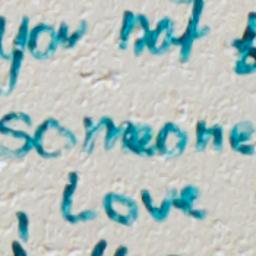 you not
someone
i Love